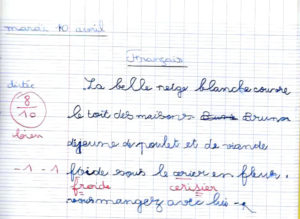 mardi 10 avril
Français
dictée
La belle neige blanche couvre
8
10
le toit des maisons Bruno
bien
déjeune de poulet et de viande
-1 -1 froide sous le cerier en fleur.
froide cerisier
vous mangez avec lui